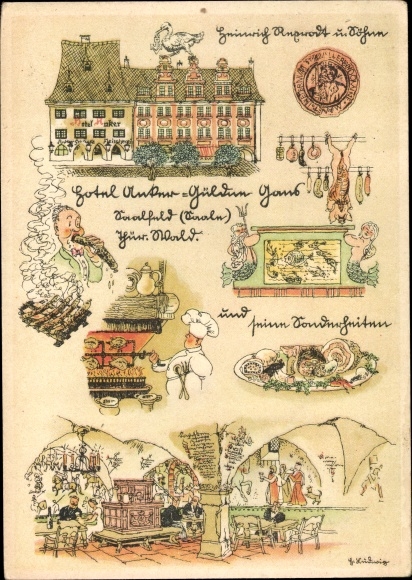 Heinrich Rexrodt u. Söhne
Hotel Anker
Hotel Anker - Güldne Gans
Saalfeld (Saale)
Thür. Wald.
und
seine Sonderheiten
H. Ludwig